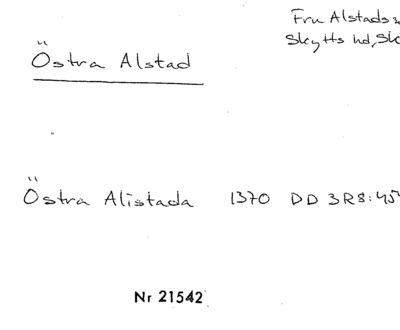 Fru Alstads
Östra Alstad
Skytts hd,
Östra Alistada 1370 DD 3R8:45
Nr 21542